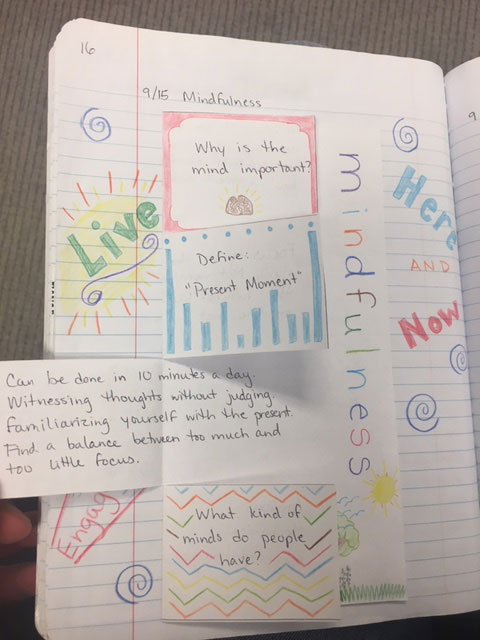 16
9/15 Mindfulness
Why is the
mind important?
Live
Define:
"Present Moment"
mindfulness
Here
AND
Now
9
Can be done in 10 minutes a day.
Witnessing thoughts without judging.
familiarizing yourself with the present.
Find a balance between too much and
too little focus.
Engag
What kind of
minds do people
have?